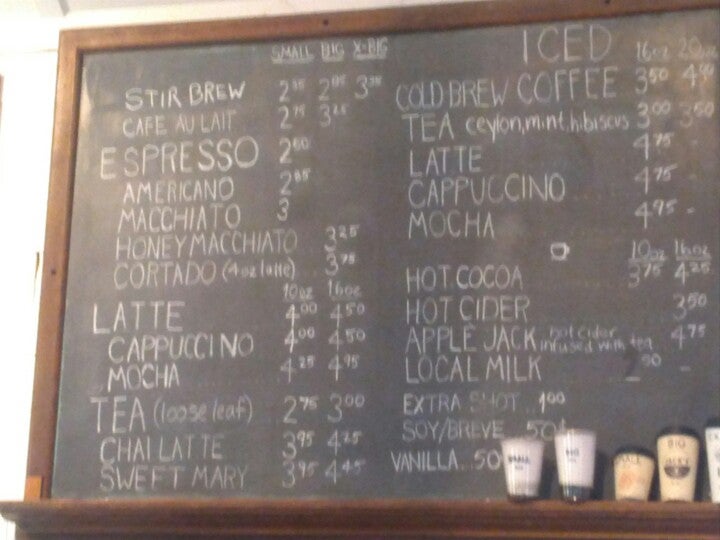 SMALL BIG X-BIG
STIR BREW
CAFE AU LAIT 2.75 3.25
ESPRESSO 2.50
AMERICANO
MACCHIATO 3
HONEY MACCHIATO 3.25
CORTADO (4oz latte) 3.75
10oz 16oz
LATTE 4.00 4.50
CAPPUCCINO 4.00 4.50
MOCHA 4.25 4.95
TEA (loose leaf) 2.75 3.00
CHAI LATTE 3.95
SWEET MARY 3.95 4.45
ICED 16oz 20oz
COLD BREW COFFEE 3.50
TEA ceylon, mint, hibiscus 3.00 3.50
LATTE 4.75 -
CAPPUCCINO 4.75 -
MOCHA 4.95 -
10oz 16oz
HOT COCOA 3.75 4.25
HOT CIDER 3.50
APPLE JACK hot cider infused with tea 4.75
LOCAL MILK
EXTRA SHOT..1.00
SOY/BREVE..50¢
VANILLA..50
SMALL
BIG
BIG